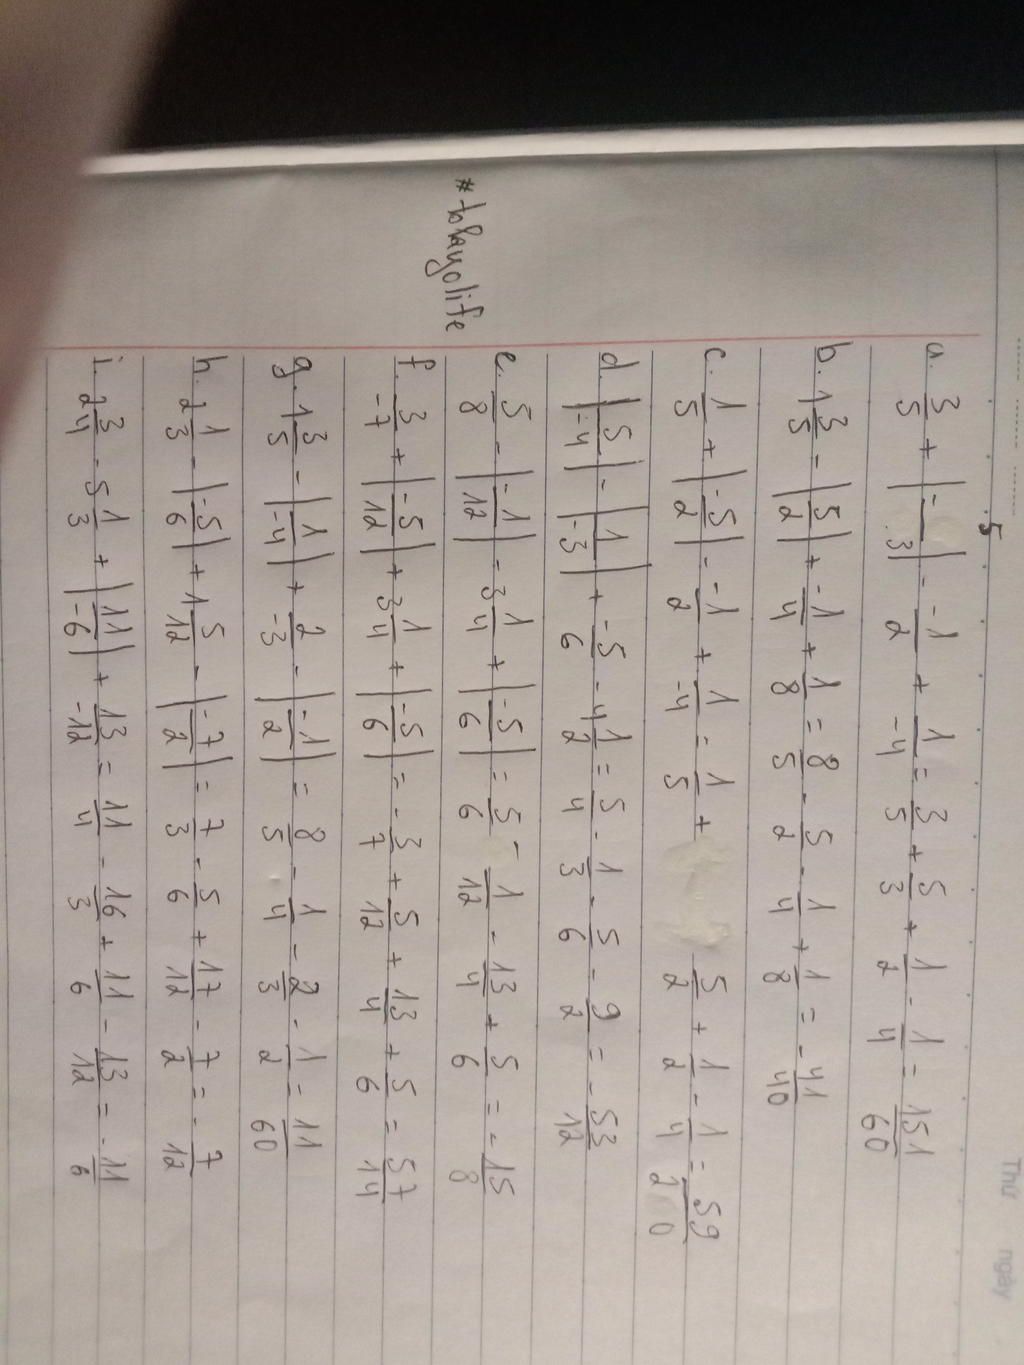 Thứ ngày
a. 3/5 + |-5/3| - -1/2 + 1/-4 = 3/5 + 5/3 + 1/2 - 1/4 = 151/60
b. 1 3/5 - |5/2| + -1/4 + 1/8 = 8/5 - 5/2 - 1/4 + 1/8 = - 41/40
c. 1/5 + |-5/2| - -1/2 + 1/-4 = 1/5 + 5/2 + 1/2 - 1/4 = 59/20
d. |5/-4| - |1/-3| + -5/6 - 4 1/2 = 5/4 - 1/3 - 5/6 - 9/2 = - 53/12
e. 5/8 - |-1/12| - 3 1/4 + |-5/6| = 5/6 - 1/12 - 13/4 + 5/6 = - 15/8
f. 3/-7 + |-5/12| + 3 1/4 + |-5/6| = - 3/7 + 5/12 + 13/4 + 5/6 = 57/14
g. 1 3/5 - |1/-4| + 2/-3 - |-1/2| = 8/5 - 1/4 - 2/3 - 1/2 = 11/60
h. 2 1/3 - |-5/6| + 1 5/12 - |-7/2| = 7/3 - 5/6 + 17/12 - 7/2 = - 7/12
i. 2 3/4 - 5 1/3 + |11/-6| + 13/-12 = 11/4 - 16/3 + 11/6 - 13/12 = - 11/6